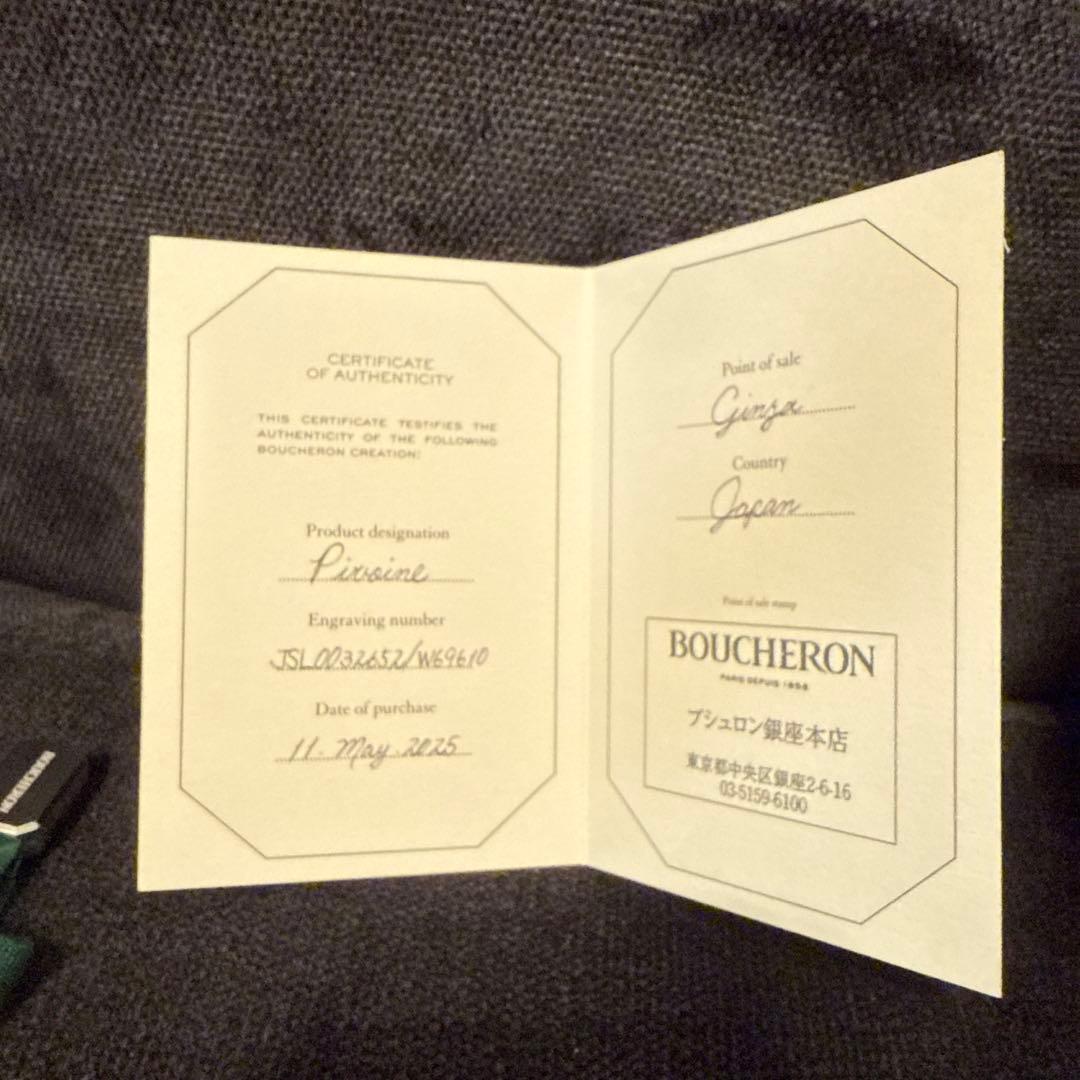 CERTIFICATE
OF AUTHENTICITY
THIS CERTIFICATE TESTIFIES THE
AUTHENTICITY OF THE FOLLOWING
BOUCHERON CREATION:
Product designation
Pivoine
Engraving number
JSL0032652/W69610
Date of purchase
11. May. 2025
Point of sale
Ginza
Country
Japan
Point of sale stamp
BOUCHERON
PARIS DEPUIS 1858
ブシュロン銀座本店
東京都中央区銀座2-6-16
03-5159-6100
BOUCHERON